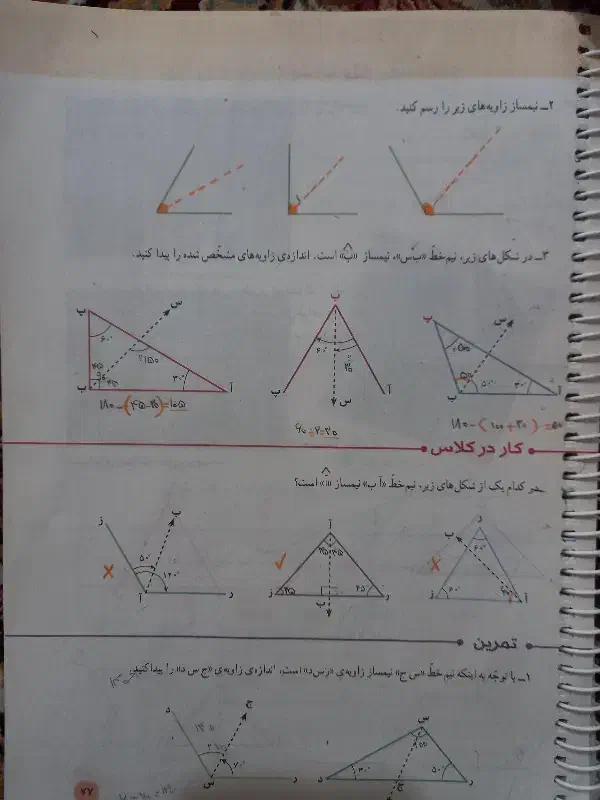 ۲ــ نیمساز زاویه‌های زیر را رسم کنید.
۳ــ در شکل‌های زیر، نیم‌خطّ «ب‌س»، نیمساز «ب̂» است. اندازه‌ی زاویه‌های مشخّص شده را پیدا کنید.
پ س
۶۰°
۳۰°
ب آ
۱۸۰-(۴۵-۳۰)=۱۰۵
ب
۶۰°
پ آ
س
پ س
۵۰°
۳۰°
ب آ
۱۸۰-(۱۰۰+۳۰)=۵۰
کار در کلاس
در کدام یک از شکل‌های زیر، نیم‌خطّ «آ ب» نیمساز «آ̂» است؟
ز ب
۵۰°
۱۲۰°
آ د
آ
۴۵ ۴۵
۴۵ ۴۵°
ز ب د
د
ب
۶۰°
۶۰°
ز آ
تمرین
۱ــ با توجّه به اینکه نیم‌خطّ «س ج» نیمساز زاویه‌ی «رس‌د» است، اندازه‌ی زاویه‌ی «ج س د» را پیدا کنید.
د ج
۷۰°
س ر
س
۳۰° ۵۰°
د ر
ج
۷۷